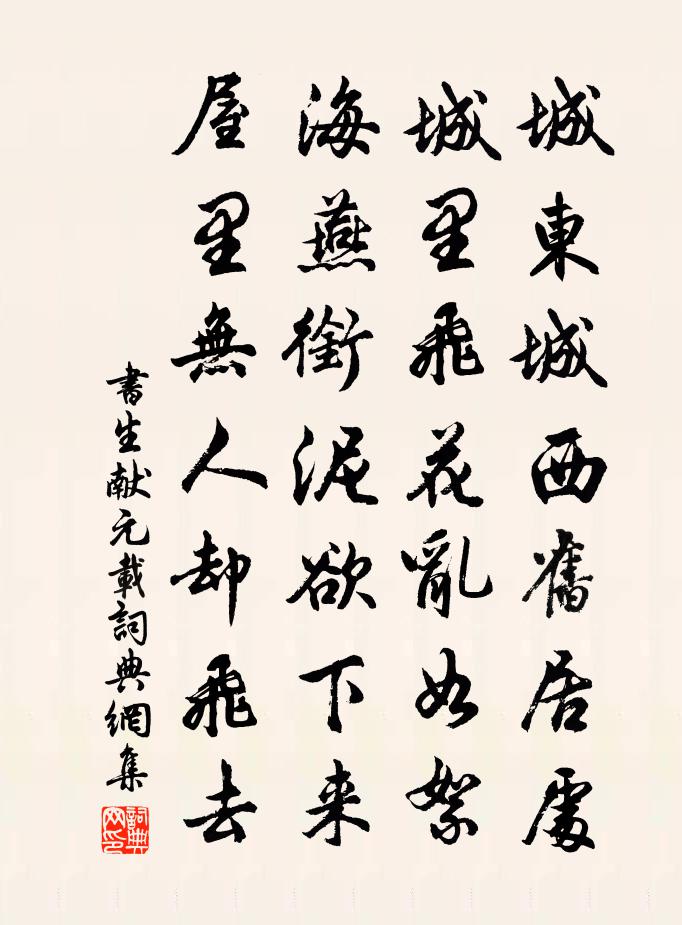 城東城西舊居處
城里飛花亂如絮
海燕銜泥欲下来
屋里無人却飛去
書生献元載詞典網集
詞典网印